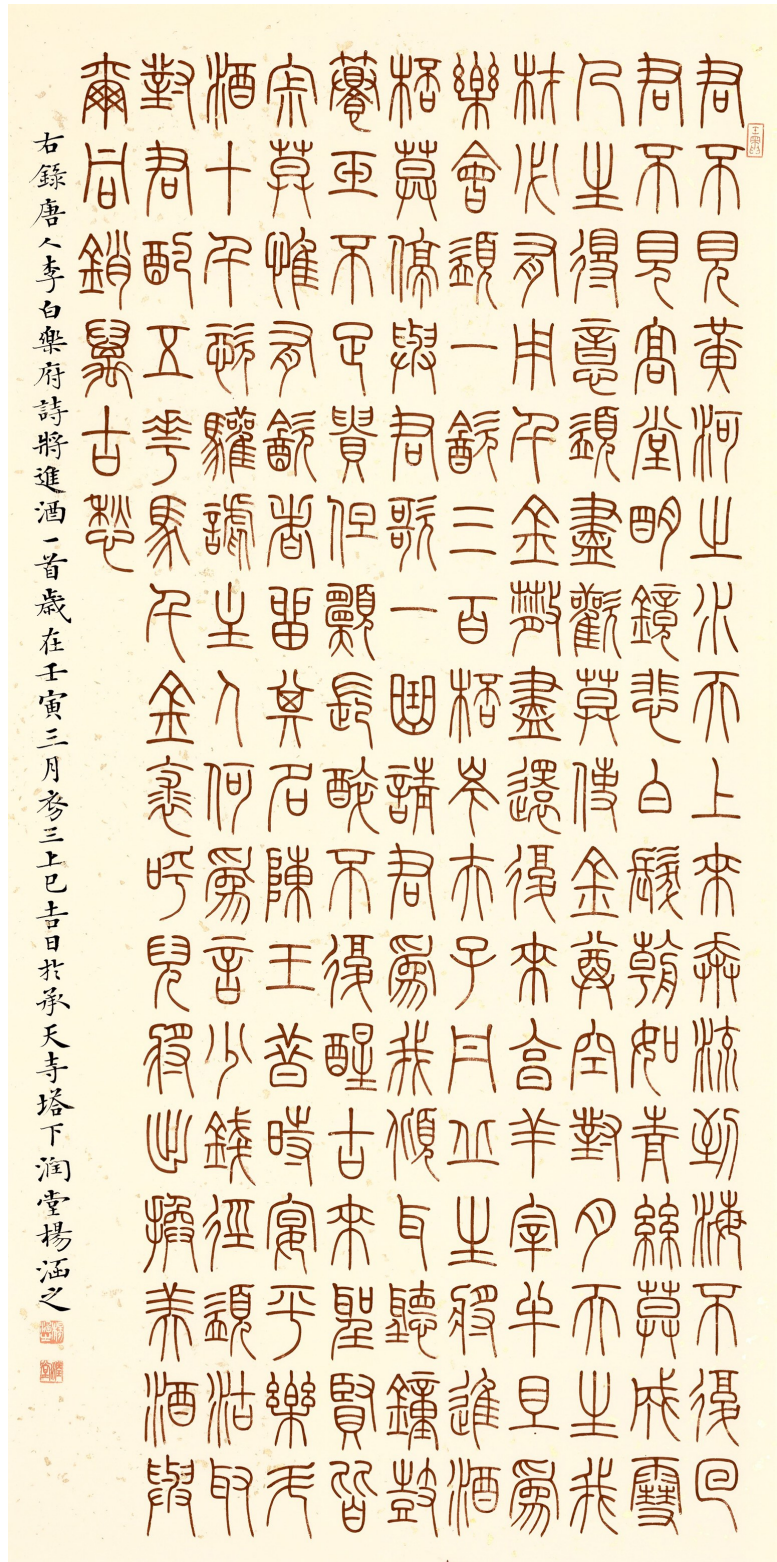 君不見黃河之水天上來奔流到海不復回
君不見高堂明鏡悲白髮朝如青絲莫成雪
人生得意須盡歡莫使金尊空對月天生我
材必有用千金散盡還復來亯羊宰牛且為
樂會須一飲三百桮岑夫子丹丘生將進酒
桮莫停與君歌一曲請君為我傾耳聽鐘鼓
饌玉不足貴但願長醉不復醒古來聖賢皆
寂莫惟有飲者留其名陳王昔時宴平樂斗
酒十千恣驩謔主人何為言少錢徑須沽取
對君酌五花馬千金裘呼兒將出換美酒與
爾同銷萬古愁
右錄唐人李白樂府詩將進酒一首歲在壬寅三月初三上巳吉日於承天寺塔下潤堂楊涵之